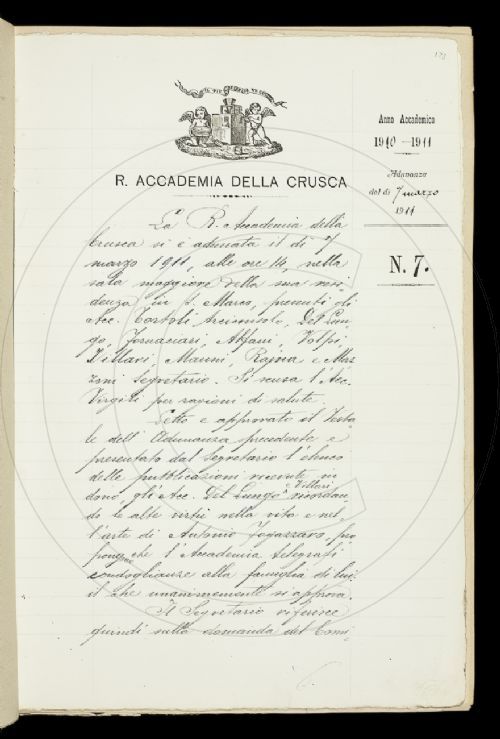 Anno Accademico
1910 - 1911
Adunanza
del dì 7 marzo
1911
N. 7.
R. ACCADEMIA DELLA CRUSCA
La R. Accademia della
Crusca si è adunata il dì 7
marzo 1911, alle ore 14, nella
sala maggiore della sua resi-
denza in S. Marco, presenti gli
Acc. Tortoli Arciconsolo, Del Lun-
go, Fornaciari, Alfani, Volpi,
Villari, Mannini, Rajna e Maz-
zoni Segretario. Si scusa l'Acc.
Virgili per ragioni di salute.
Letto e approvato il Verba-
le dell'Adunanza precedente e
presentato dal Segretario l'elenco
delle pubblicazioni ricevute in
dono, gli Acc. Del Lungo e Villari ricordan-
do le alte virtù nella vita e nel-
l'arte di Antonio Fogazzaro, pro-
pongono che l'Accademia telegrafi
condoglianze alla famiglia di lui:
il che unanimemente si approva.
Il Segretario riferisce
quindi sulla domanda del Comi-